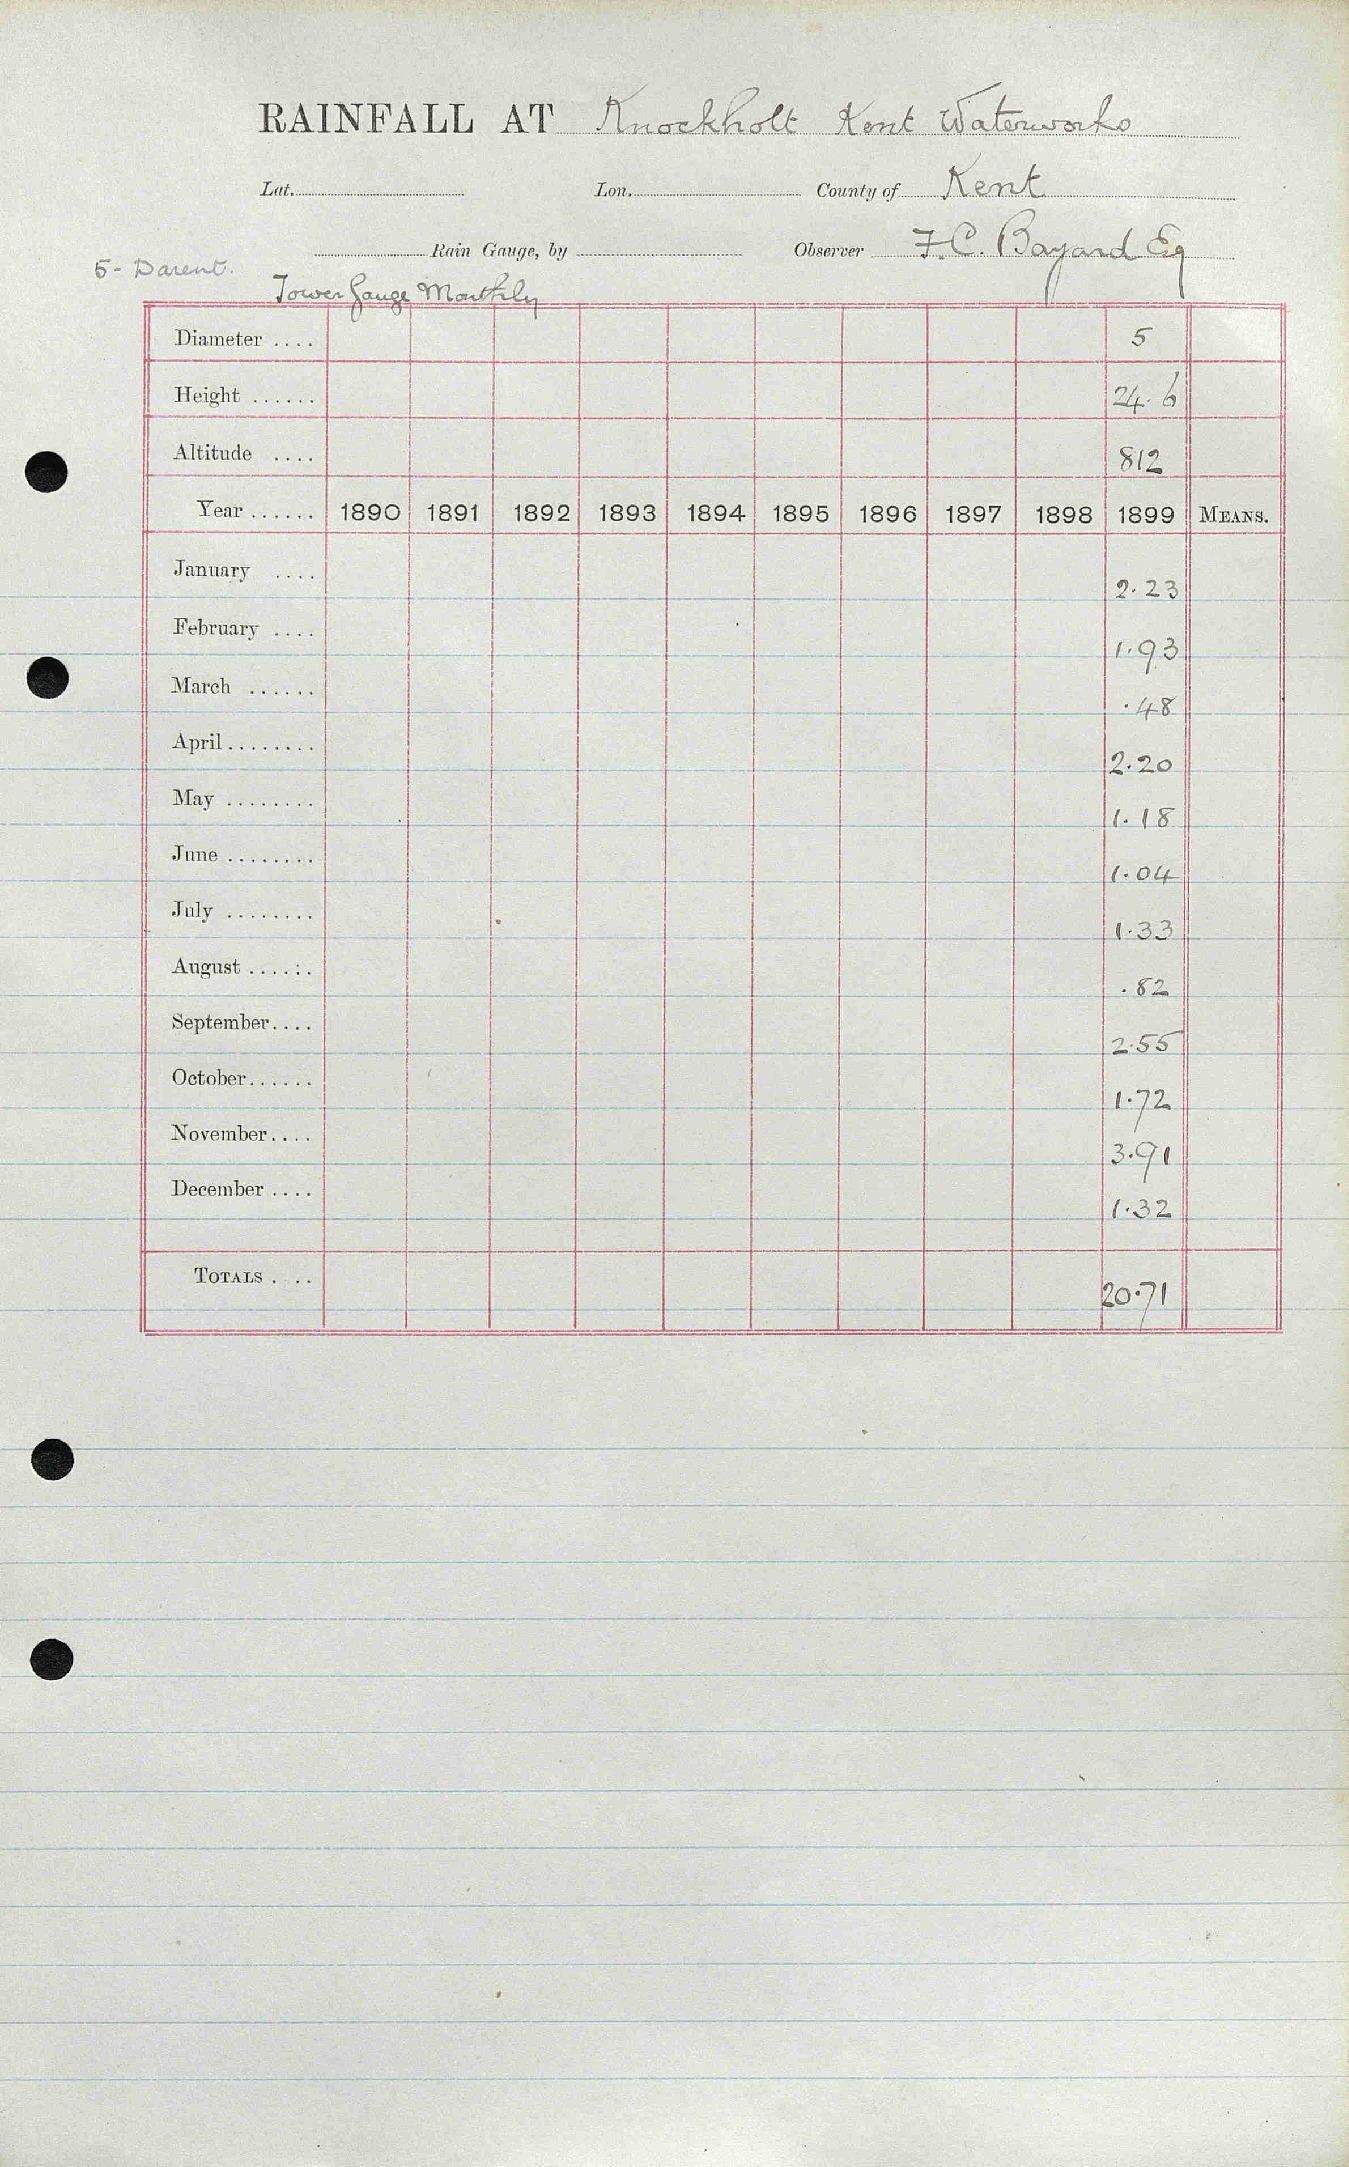 RAINFALL AT Knockholt Kent Waterworks
Lat. Lon. County of Kent
Rain Gauge, by Observer F.C. Bayard Esq
5- Darent.
Tower Gauge Monthly
Diameter .... 5
Height ...... 24. 6
Altitude .... 812
Year ...... 1890 1891 1892 1893 1894 1895 1896 1897 1898 1899 MEANS.
January .... 2.23
February .... 1.93
March ...... .48
April ........ 2.20
May ........ 1.18
June ........ 1.04
July ........ 1.33
August ...... .82
September.... 2.55
October...... 1.72
November.... 3.91
December .... 1.32
TOTALS .... 20.71